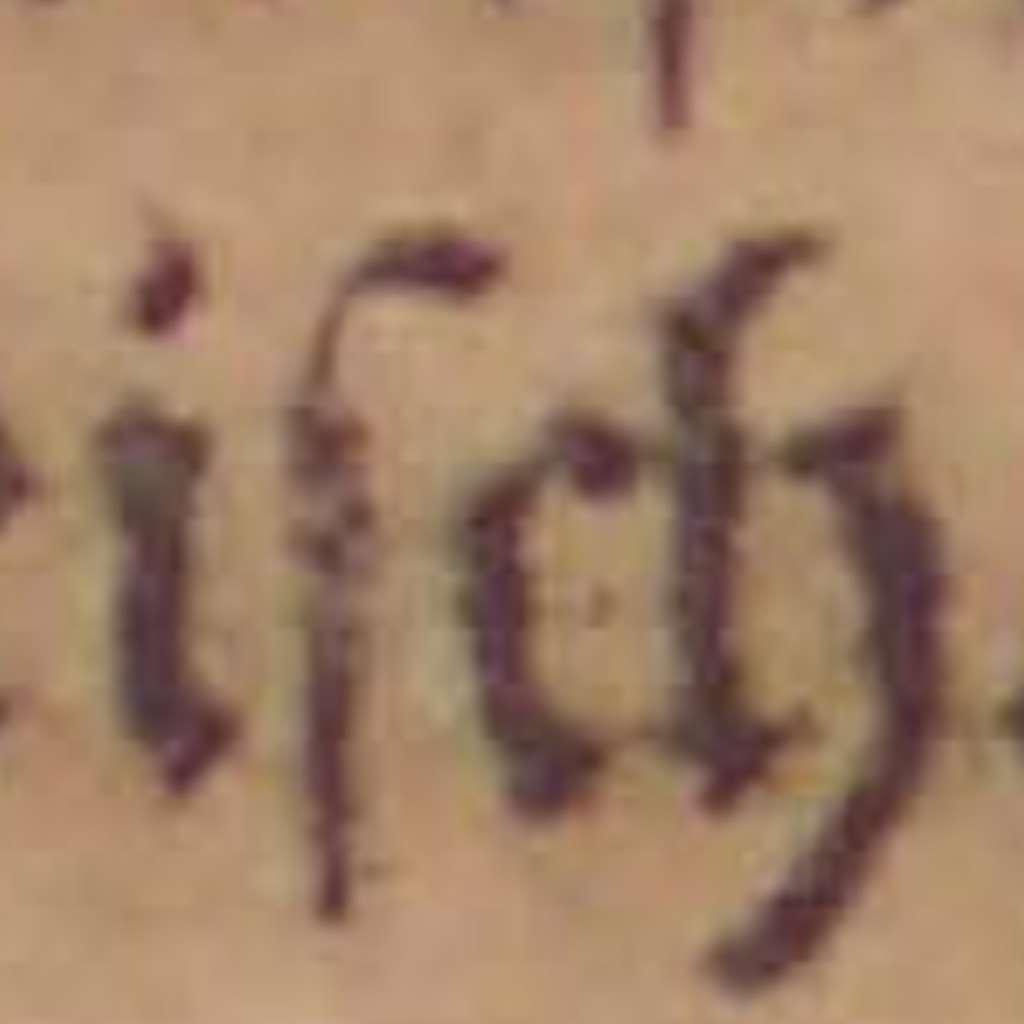 iſch